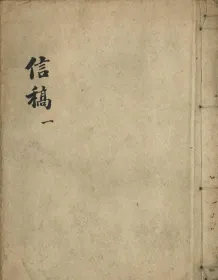 信稿一